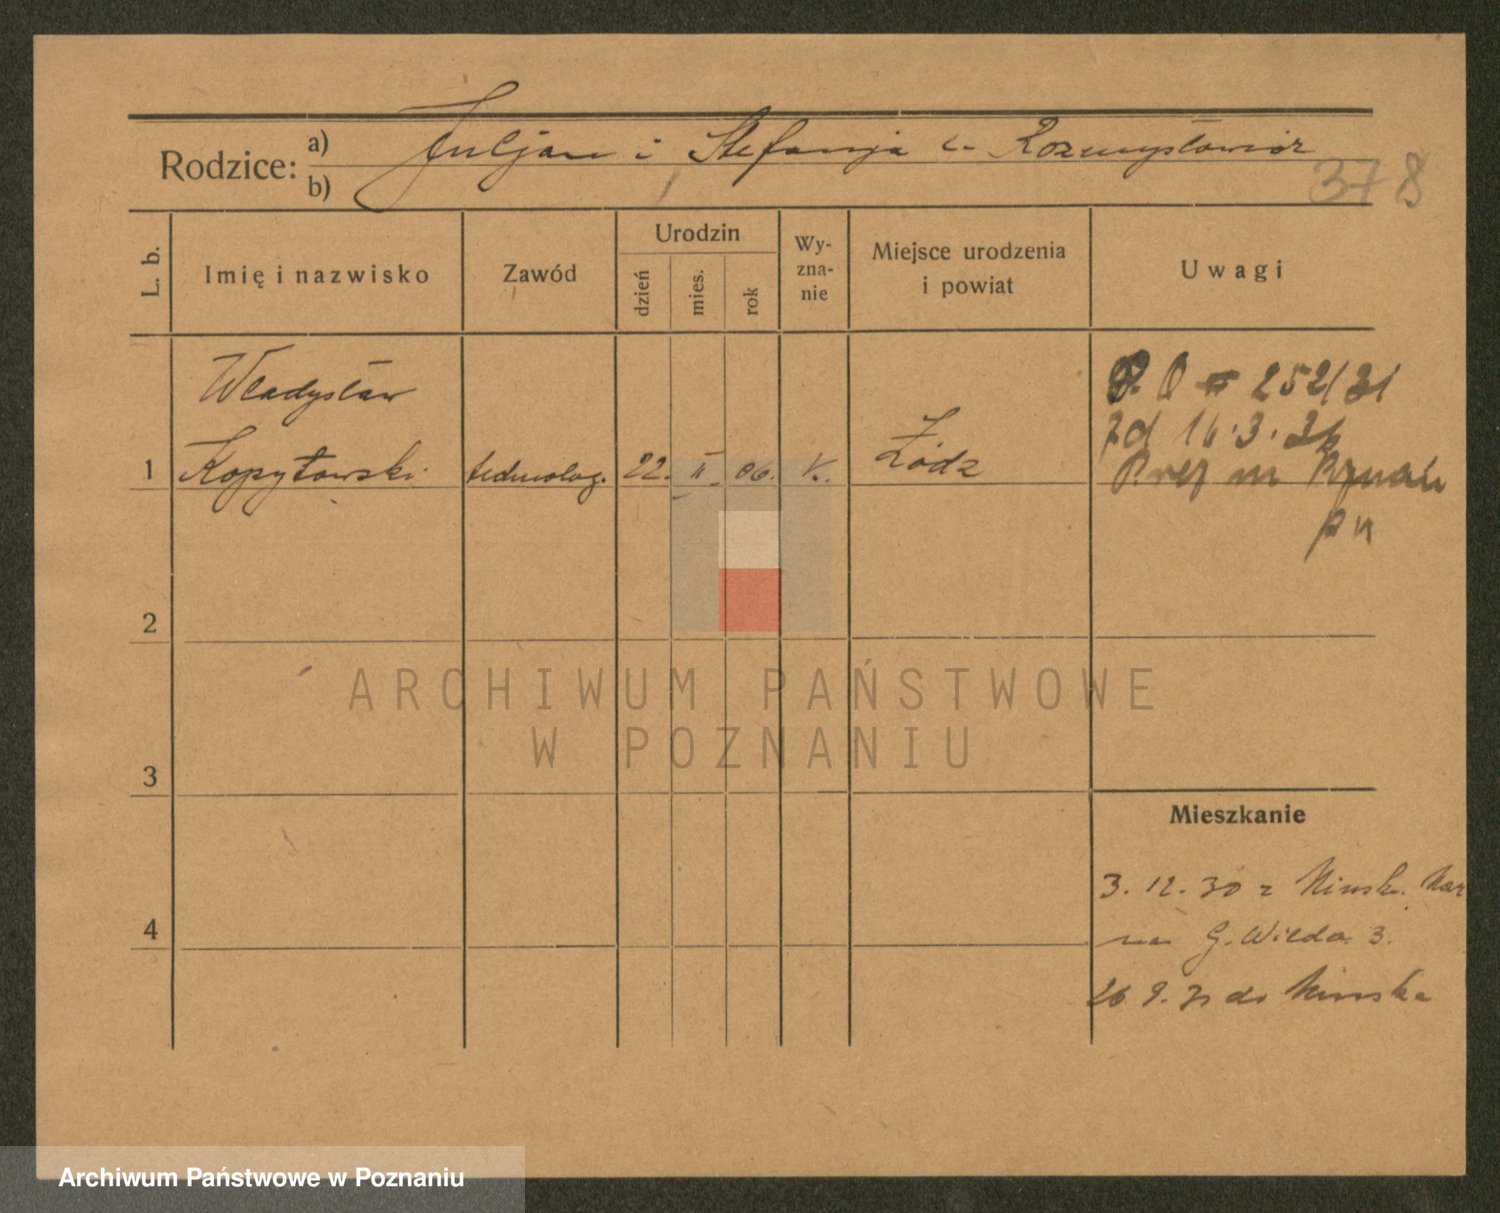 Rodzice: a) Juljan i Stefanja z. Rozmysłowicz
b)
378
L. b.
Imię i nazwisko
Zawód
Urodzin
dzień
mies.
rok
Wy-
zna-
nie
Miejsce urodzenia
i powiat
Uwagi
Władysław
1 Kopytowski technolog. 22. II. 06. k. Łódź
252/31
zd 16.3.31
Prez m Poznań
2
ARCHIWUM PAŃSTWOWE
W POZNANIU
3
Mieszkanie
3. 12. 30 z Mińsk. Maz
4
na G. Wilda 3.
26 9. 31 do Mińska
Archiwum Państwowe w Poznaniu